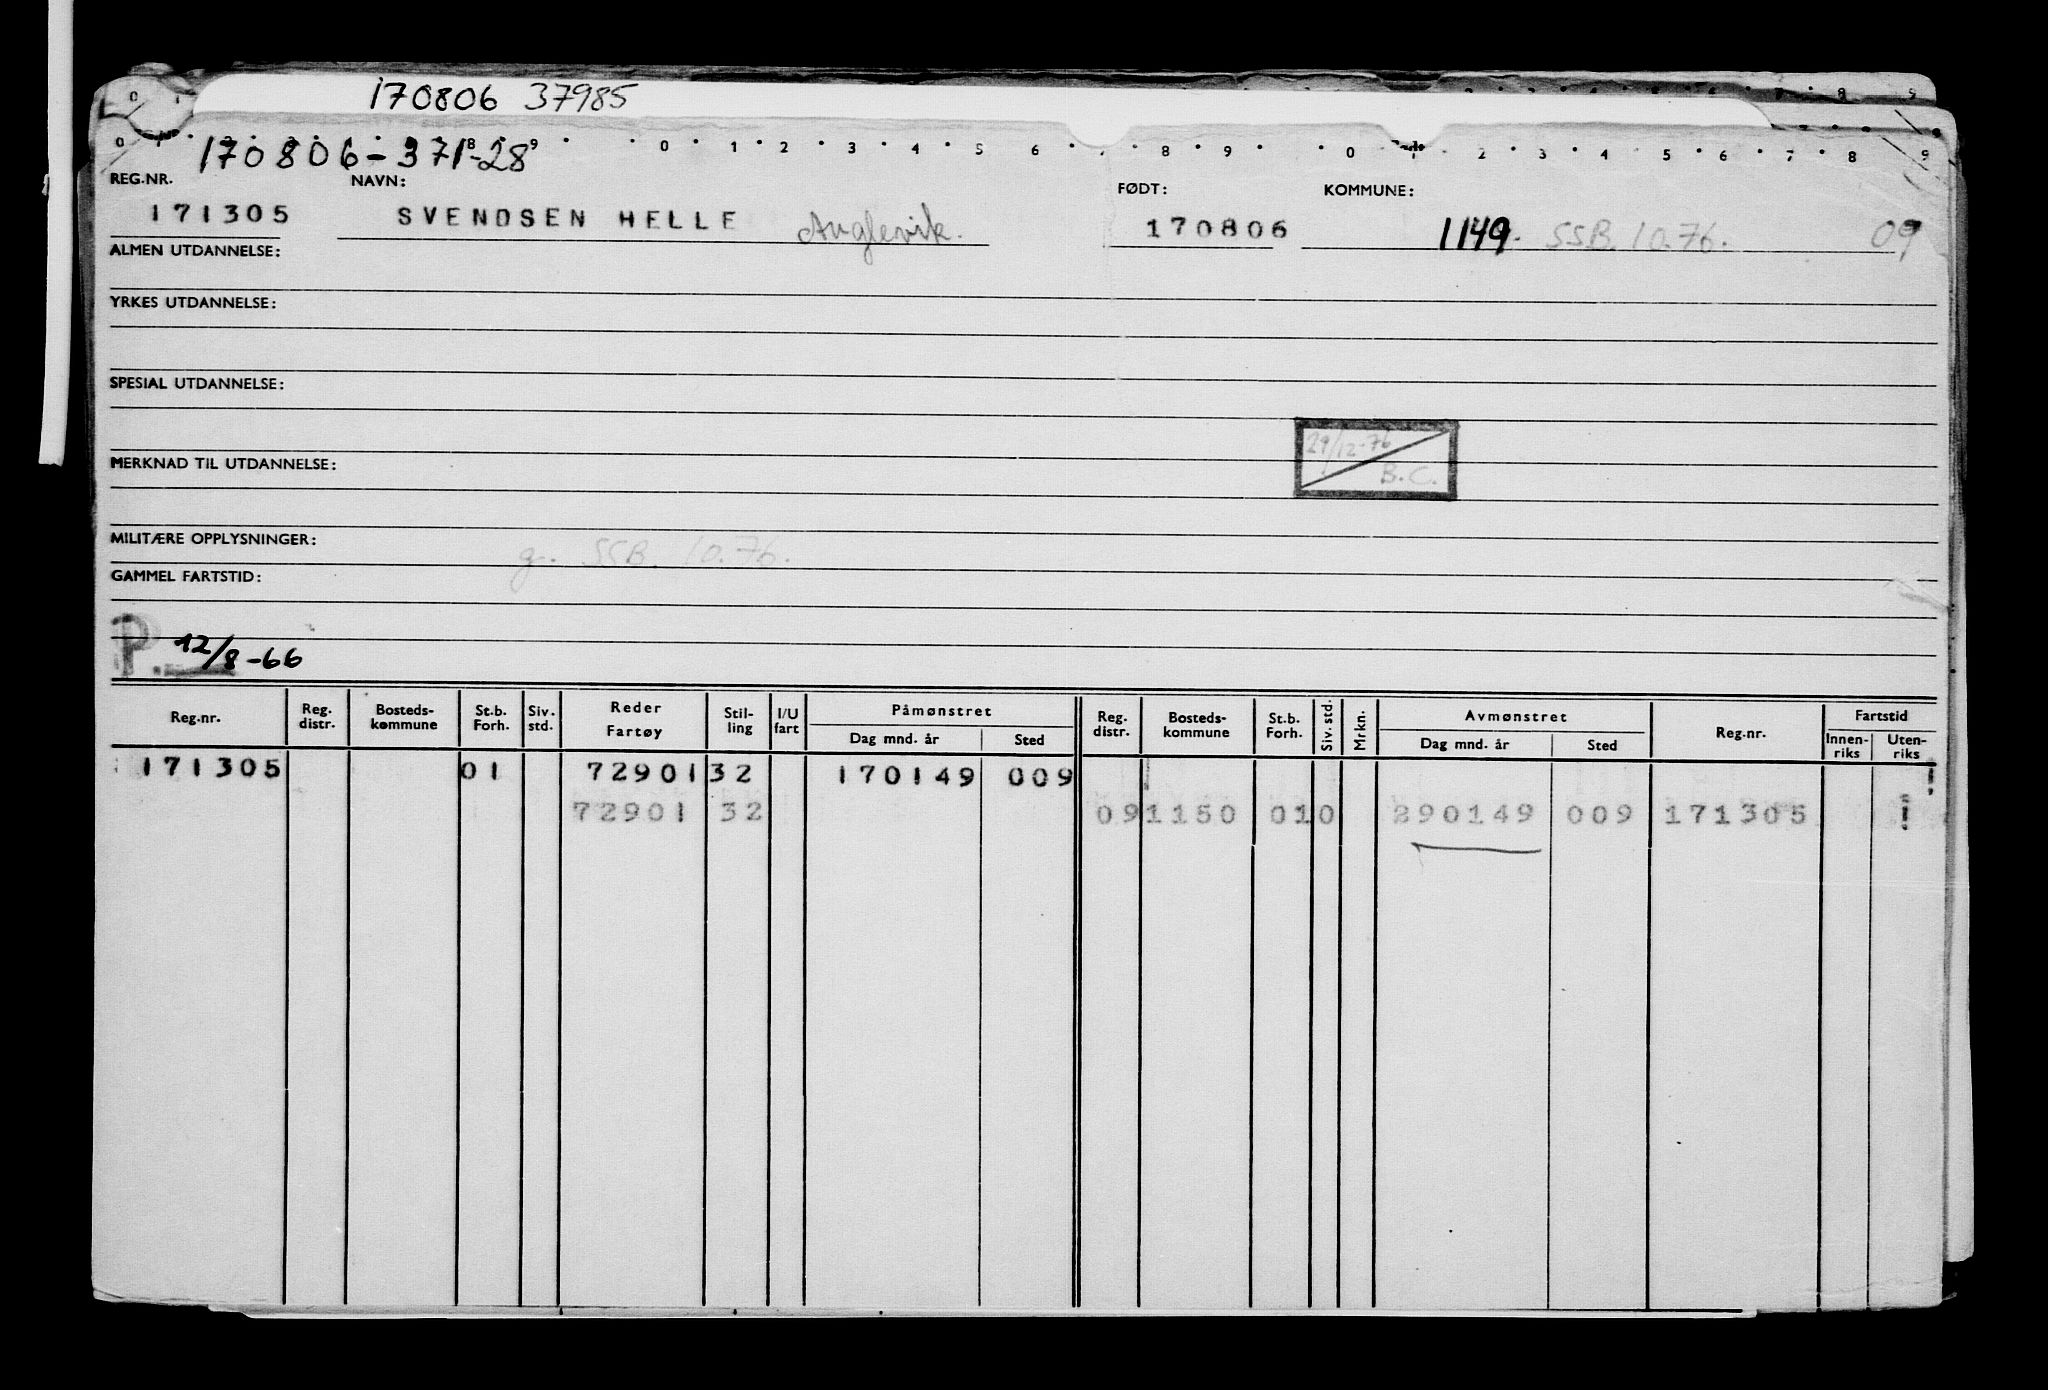 170806 37985
170806-371-28
REG.NR. NAVN: FØDT: KOMMUNE:
171305 SVENDSEN HELLE Auglevik. 170806 1149. SSB. 10.76. 09
ALMEN UTDANNELSE:
YRKES UTDANNELSE:
SPESIAL UTDANNELSE:
29/12-76
MERKNAD TIL UTDANNELSE:
B.C.
MILITÆRE OPPLYSNINGER:
g. SSB. 10.76.
GAMMEL FARTSTID:
P. 12/8-66
Reg.nr. Reg. distr. Bosteds-kommune St.b. Forh. Siv. std. Reder Fartøy Stil-ling I/U fart Påmønstret Dag mnd. år Sted Reg. distr. Bosteds-kommune St.b. Forh. Siv. std. Mrkn. Avmønstret Dag mnd. år Sted Reg.nr. Fartstid Innen-riks Uten-riks
171305 01 72901 32 170149 009
72901 32 09 1150 01 0 290149 009 171305